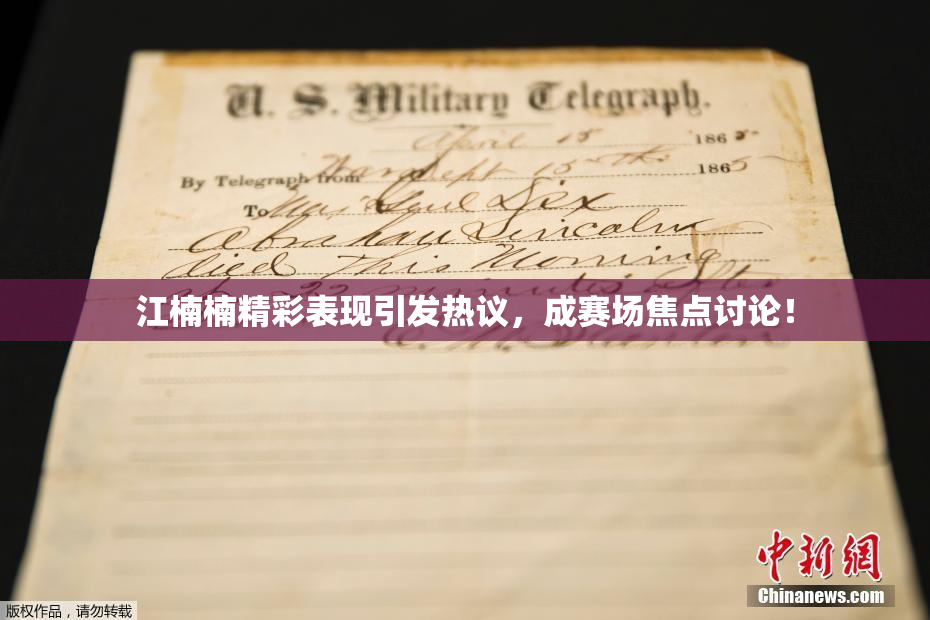 U. S. Military Telegraph.
April 15 1865
By Telegraph from War Dept 15th 1865
To Maj Genl Dix
Abraham Lincoln
died This Morning
at 22 minutes after
江楠楠精彩表现引发热议，成赛场焦点讨论！
E. M. Stanton
中新网
Chinanews.com
版权作品，请勿转载